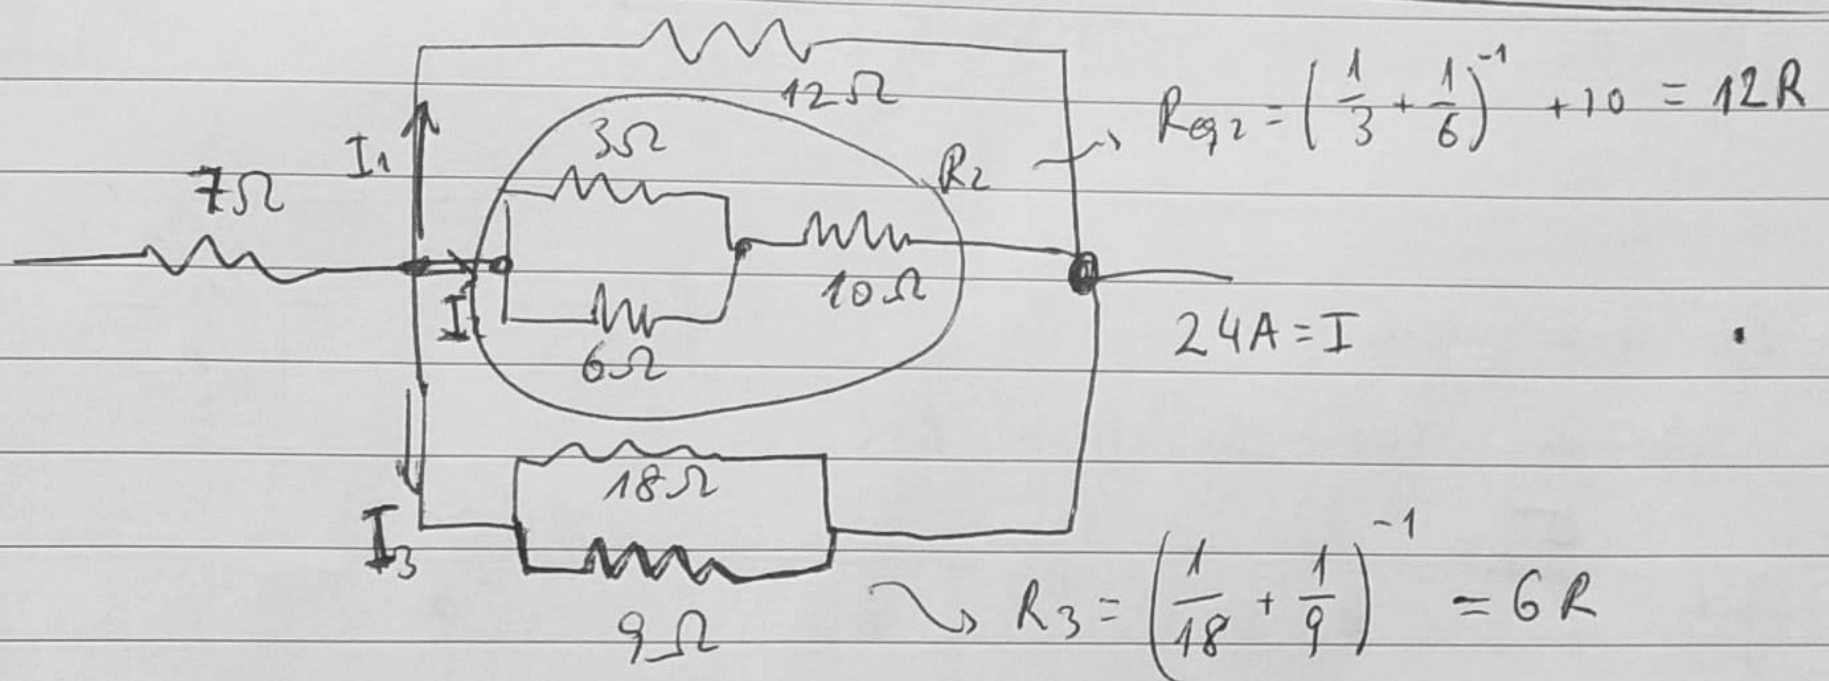 12Ω
Req2 = (1/3 + 1/6)^-1 + 10 = 12R
I1
3Ω
R2
7Ω
10Ω
I
24A = I
6Ω
18Ω
I3
R3 = (1/18 + 1/9)^-1 = 6R
9Ω